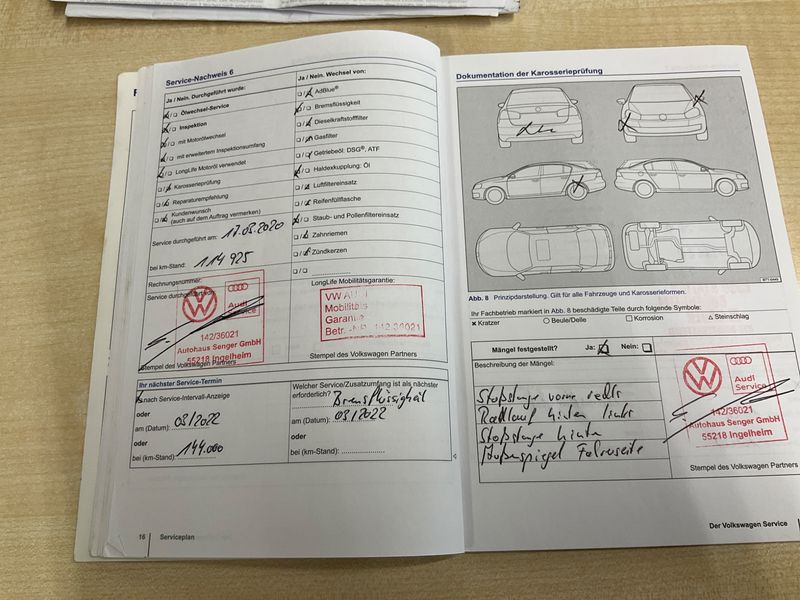 Service-Nachweis 6
Ja / Nein. Durchgeführt wurde:
Ölwechsel-Service
Inspektion
mit Motorölwechsel
mit erweitertem Inspektionsumfang
LongLife Motoröl verwendet
Karosserieprüfung
Reparaturempfehlung
Kundenwunsch
(auch auf dem Auftrag vermerken)
Service durchgeführt am: 17.03.2020
bei km-Stand: 114 925
Rechnungsnummer:
Service durchgeführt
Audi
Service
142/36021
Autohaus Senger GmbH
55218 Ingelheim
Stempel des Volkswagen Partners
Ja / Nein. Wechsel von:
AdBlue®
Bremsflüssigkeit
Dieselkraftstofffilter
Gasfilter
Getriebeöl: DSG®, ATF
Haldexkupplung: Öl
Luftfiltereinsatz
Reifenfüllflasche
Staub- und Pollenfiltereinsatz
Zahnriemen
Zündkerzen
LongLife Mobilitätsgarantie:
VW AUDI
Mobilitäts
Garantie
Betr.-Nr. 142/36021
Stempel des Volkswagen Partners
Ihr nächster Service-Termin
nach Service-Intervall-Anzeige
oder
am (Datum): 03/2022
oder
bei (km-Stand): 144.000
Welcher Service/Zusatzumfang ist als nächster
erforderlich? Bremsflüssigkeit
am (Datum): 03/2022
oder
bei (km-Stand):
16 Serviceplan
Dokumentation der Karosserieprüfung
Abb. 8 Prinzipdarstellung. Gilt für alle Fahrzeuge und Karosserieformen.
Ihr Fachbetrieb markiert in Abb. 8 beschädigte Teile durch folgende Symbole:
x Kratzer ○ Beule/Delle □ Korrosion △ Steinschlag
Mängel festgestellt? Ja: Nein:
Beschreibung der Mängel:
Stoßstange vorne rechts
Radlauf hinten links
Stoßstange hinten
Außenspiegel Fahrerseite
Audi
Service
142/36021
Autohaus Senger GmbH
55218 Ingelheim
Stempel des Volkswagen Partners
Der Volkswagen Service